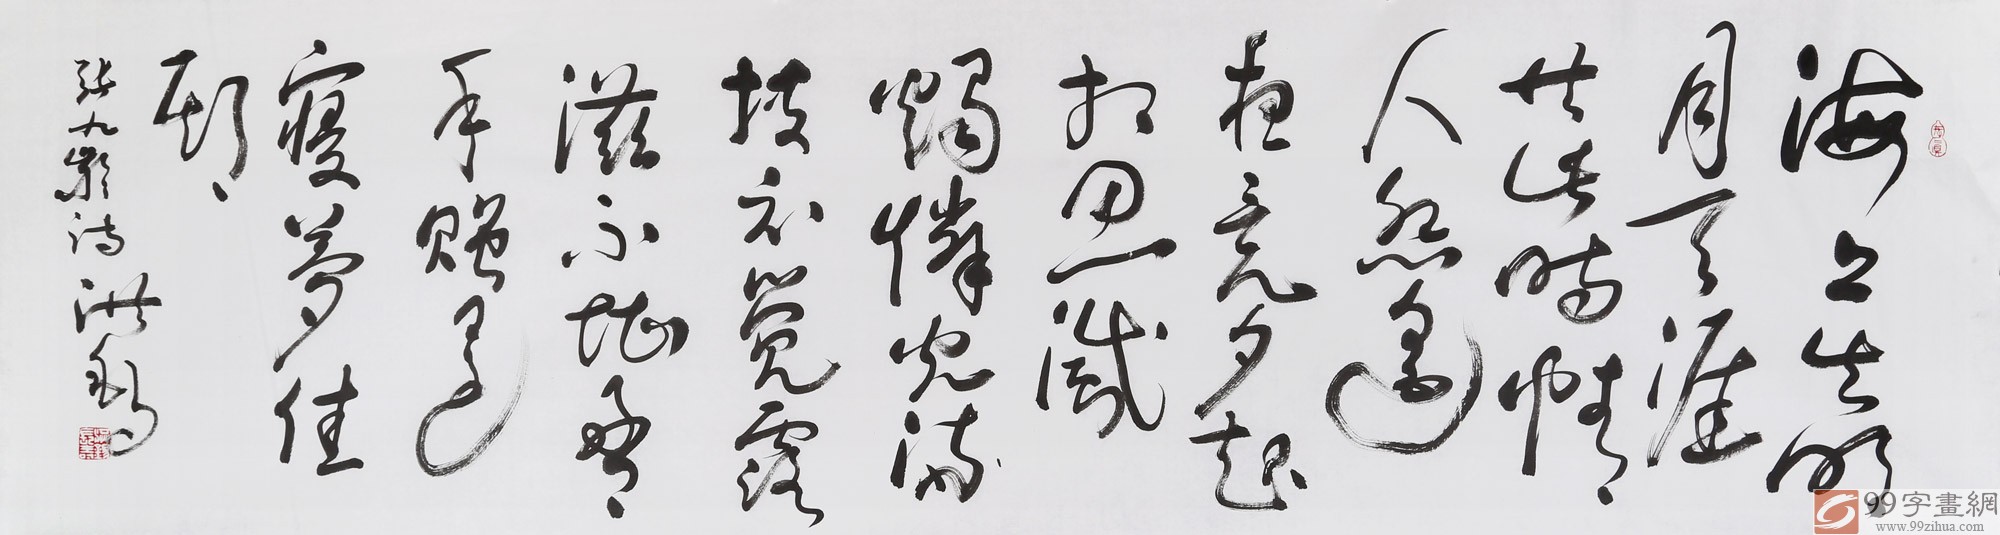 海上生明
月天涯
共此時情
人怨遙
夜竟夕起
相思滅
燭憐光滿
披衣覺露
滋不堪盈
手贈還
寢夢佳
期
張九齡詩 洪
99字畫網
www.99zihua.com